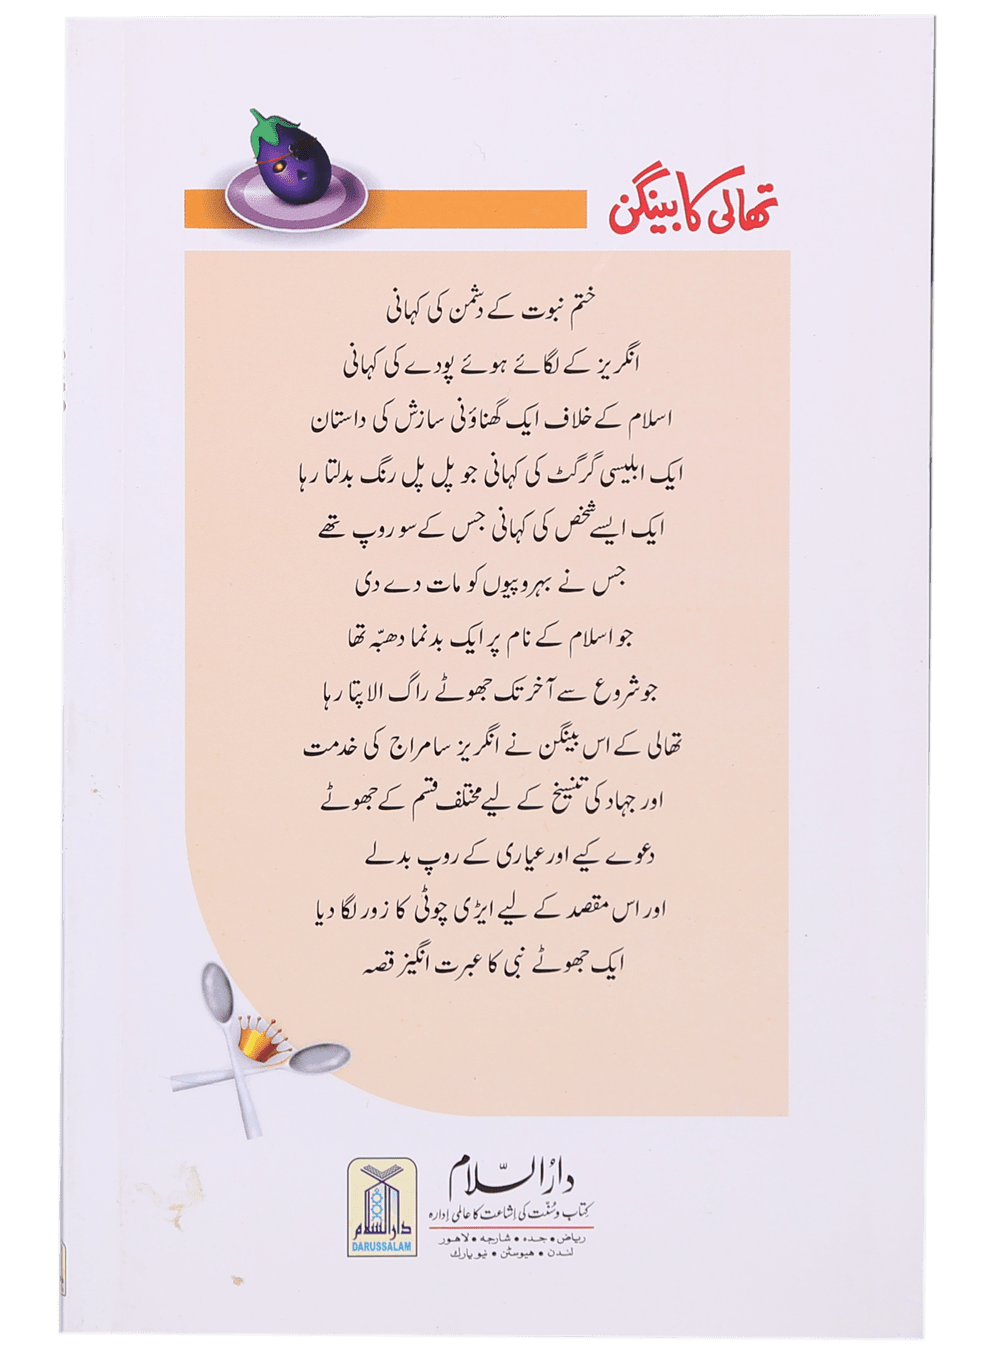 تھالی کا بینگن
ختم نبوت کے دشمن کی کہانی
انگریز کے لگائے ہوئے پودے کی کہانی
اسلام کے خلاف ایک گھناؤنی سازش کی داستان
ایک ابلیسی گرگٹ کی کہانی جو پل پل رنگ بدلتا رہا
ایک ایسے شخص کی کہانی جس کے سو روپ تھے
جس نے بہروپیوں کو مات دے دی
جو اسلام کے نام پر ایک بدنما دھبّہ تھا
جو شروع سے آخر تک جھوٹے راگ الاپتا رہا
تھالی کے اس بینگن نے انگریز سامراج کی خدمت
اور جہاد کی تنسیخ کے لیے مختلف قسم کے جھوٹے
دعوے کیے اور عیاری کے روپ بدلے
اور اس مقصد کے لیے ایڑی چوٹی کا زور لگا دیا
ایک جھوٹے نبی کا عبرت انگیز قصہ
دارُالسّلام
کتاب و سُنّت کی اشاعت کا عالمی ادارہ
ریاض • جدہ • شارجہ • لاہور
لندن • ہیوسٹن • نیو یارک
دارالسلام
DARUSSALAM